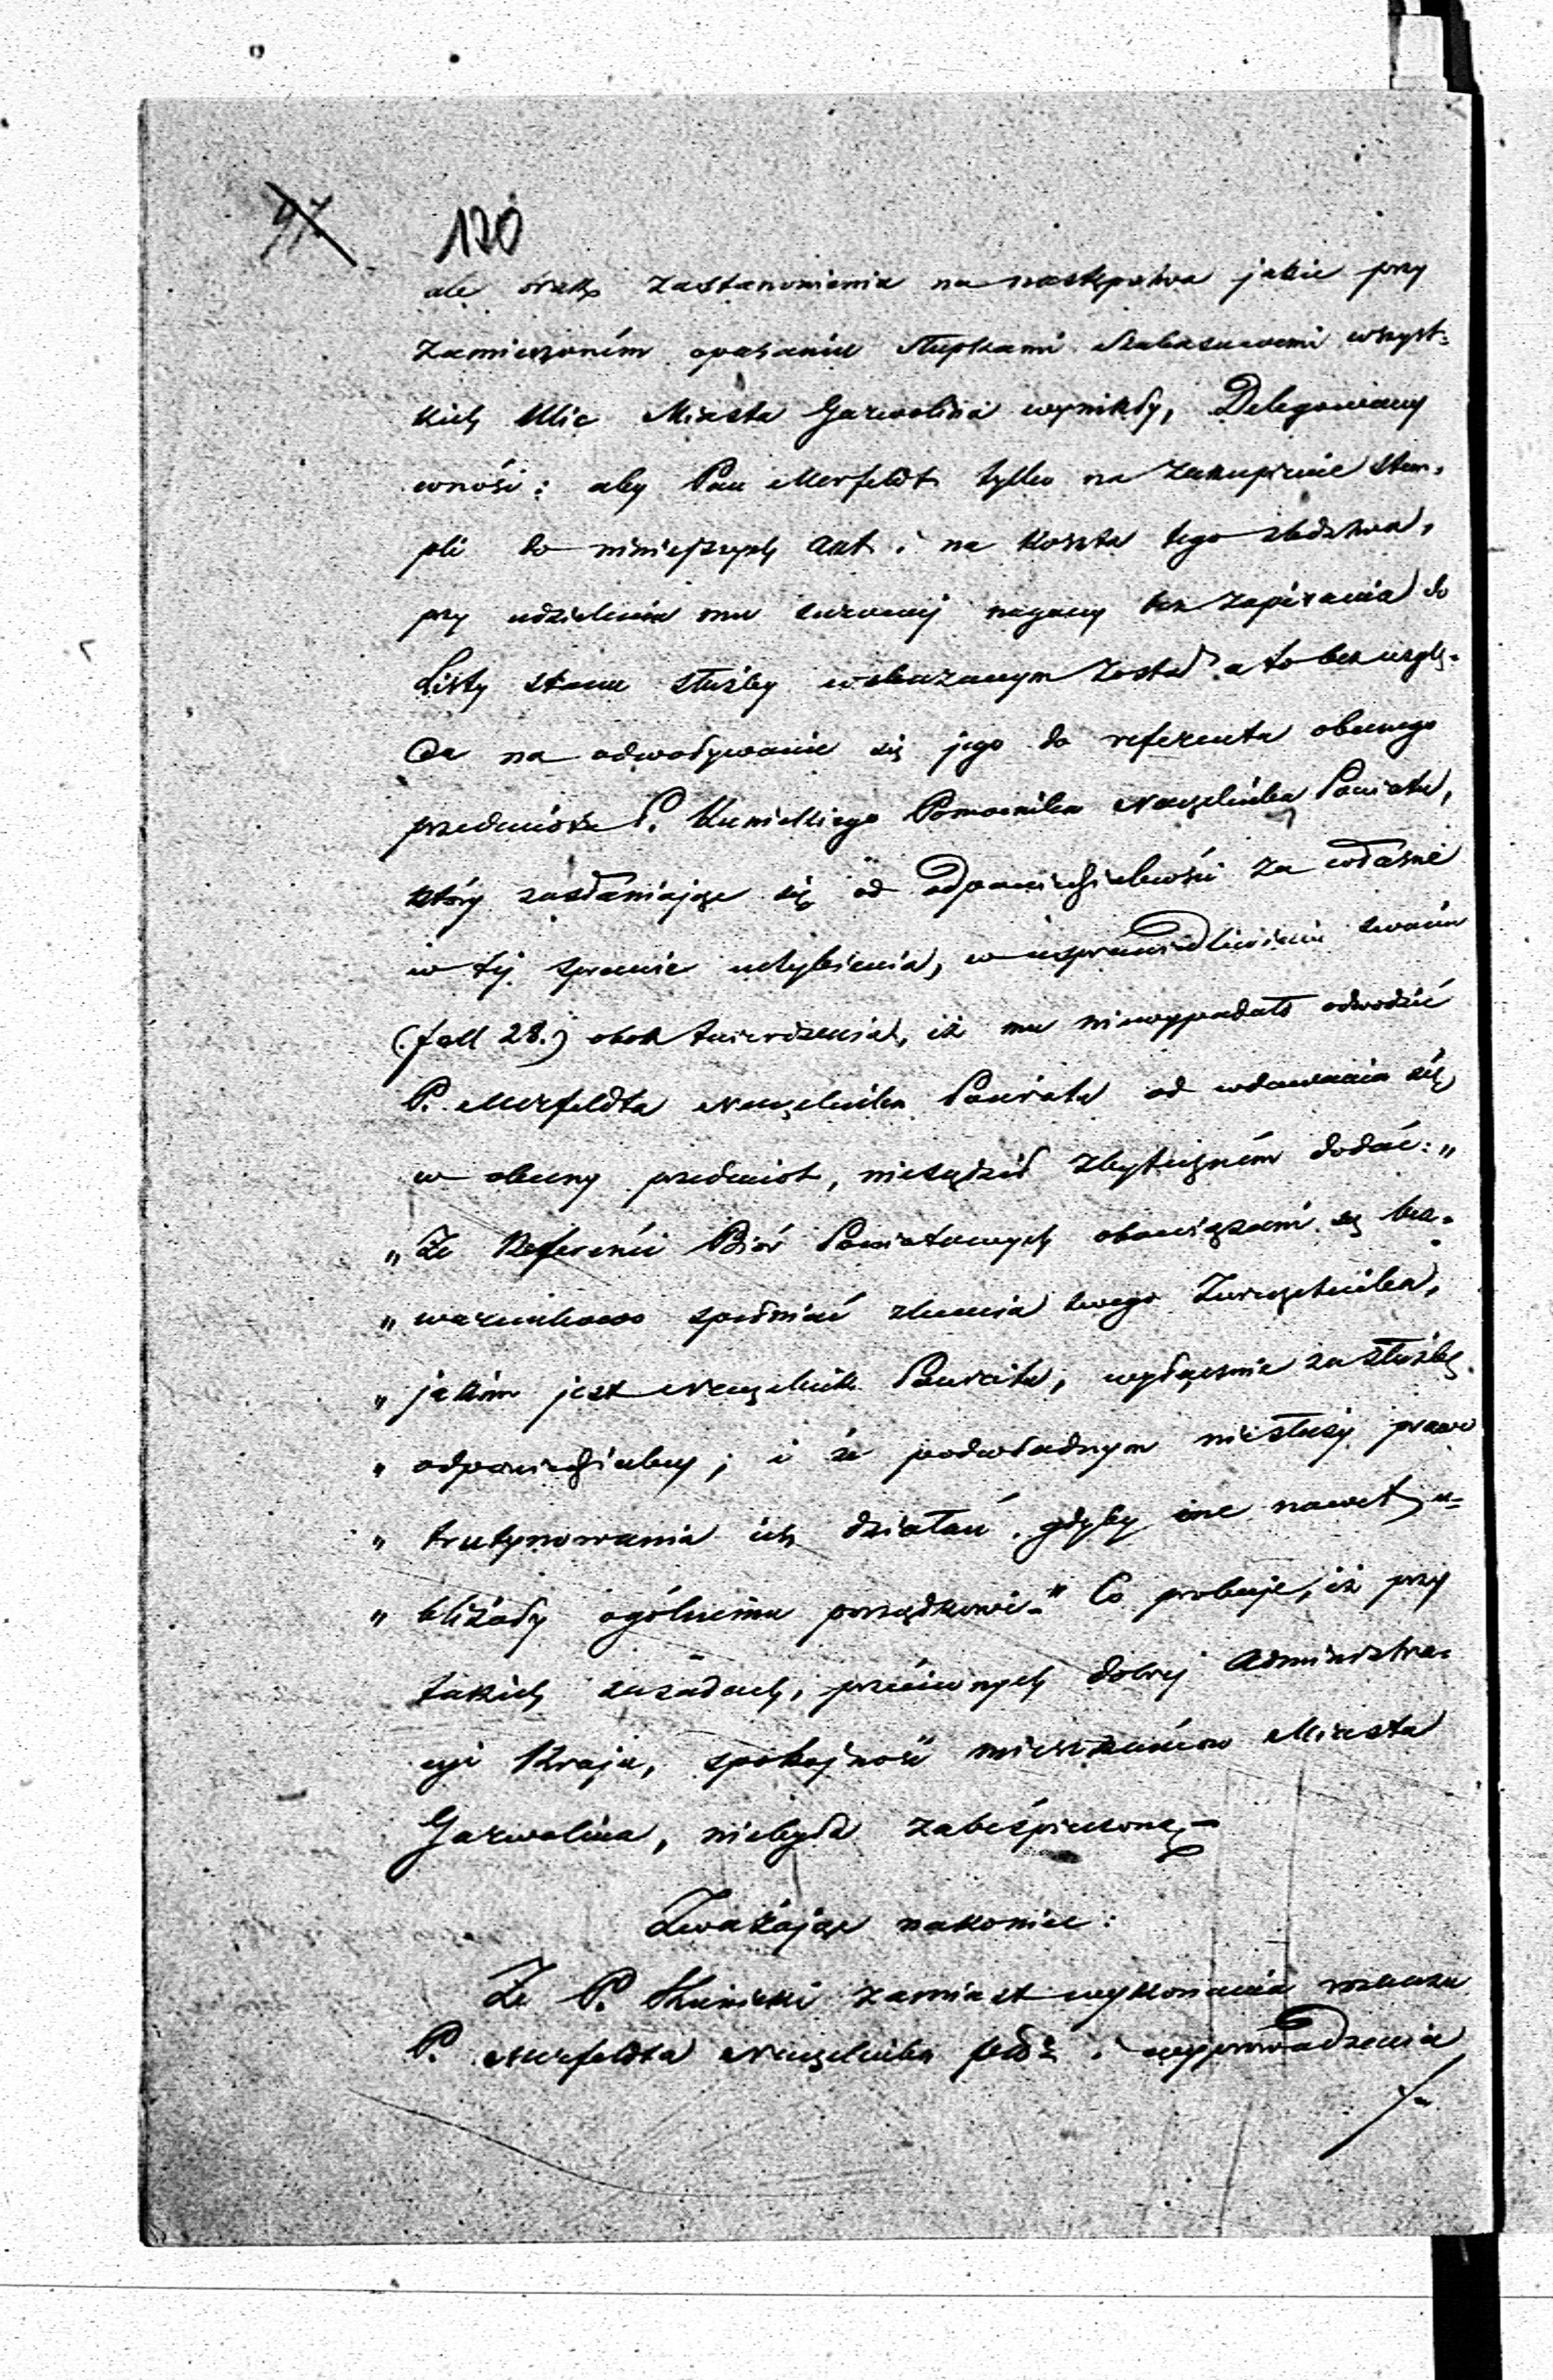 97
120
ale braku zastanowienia na następstwa jakie przy
zamierzoném opasaniu słupkami Szabasowemi wszyst=
kich Ulic Miasta Garwolina wynikły, Delegowany
wnosi: aby Pan Merfeldt tylko na zakupienie stem=
pli do niniejszych akt i na koszta tego śledztwa,
przy udzieleniu mu surowej nagany bez zapisania do
Listy stanu służby wskazanym został, a to bez wzglę=
du na odwoływanie się jego do referenta obecnego
przedmiotu P. Kunickiego Pomocnika Naczelnika Powiatu,
który zasłaniając się od odpowiedzialności za własne
w tej sprawie uchybienia, w usprawiedliwieniu swoim
(: fall 28.) obok twierdzenia, iż mu niewypadało odwodzić
P. Merfeldta Naczelnika Powiatu od wdawania się
w obecny przedmiot, niesądził zbyteczném dodać: "
" Że Referenci Biór Powiatowych obowiązani są bez=
" warunkowo spełniać zlecenia swego Zwierzchnika,
" jakim jest Naczelnik Powiatu, wyłącznie za służbę
" odpowiedzialny; i że podwładnym niesłuży prawo
" trutynowania ich działań, gdyby one nawet u=
" bliżały ogólnemu porządkowi." Co probuje, iż przy
takich zasadach, przeciwnych dobrej Administra=
cyi Kraju, spokojność mieszkańców Miasta
Garwolina, niebyła zabeśpieczoną.
Zważając nakoniec:
Że P. Kunicki zamiast wykonania rozkazu
P. Merfeldta Naczelnika i wyprowadzenia